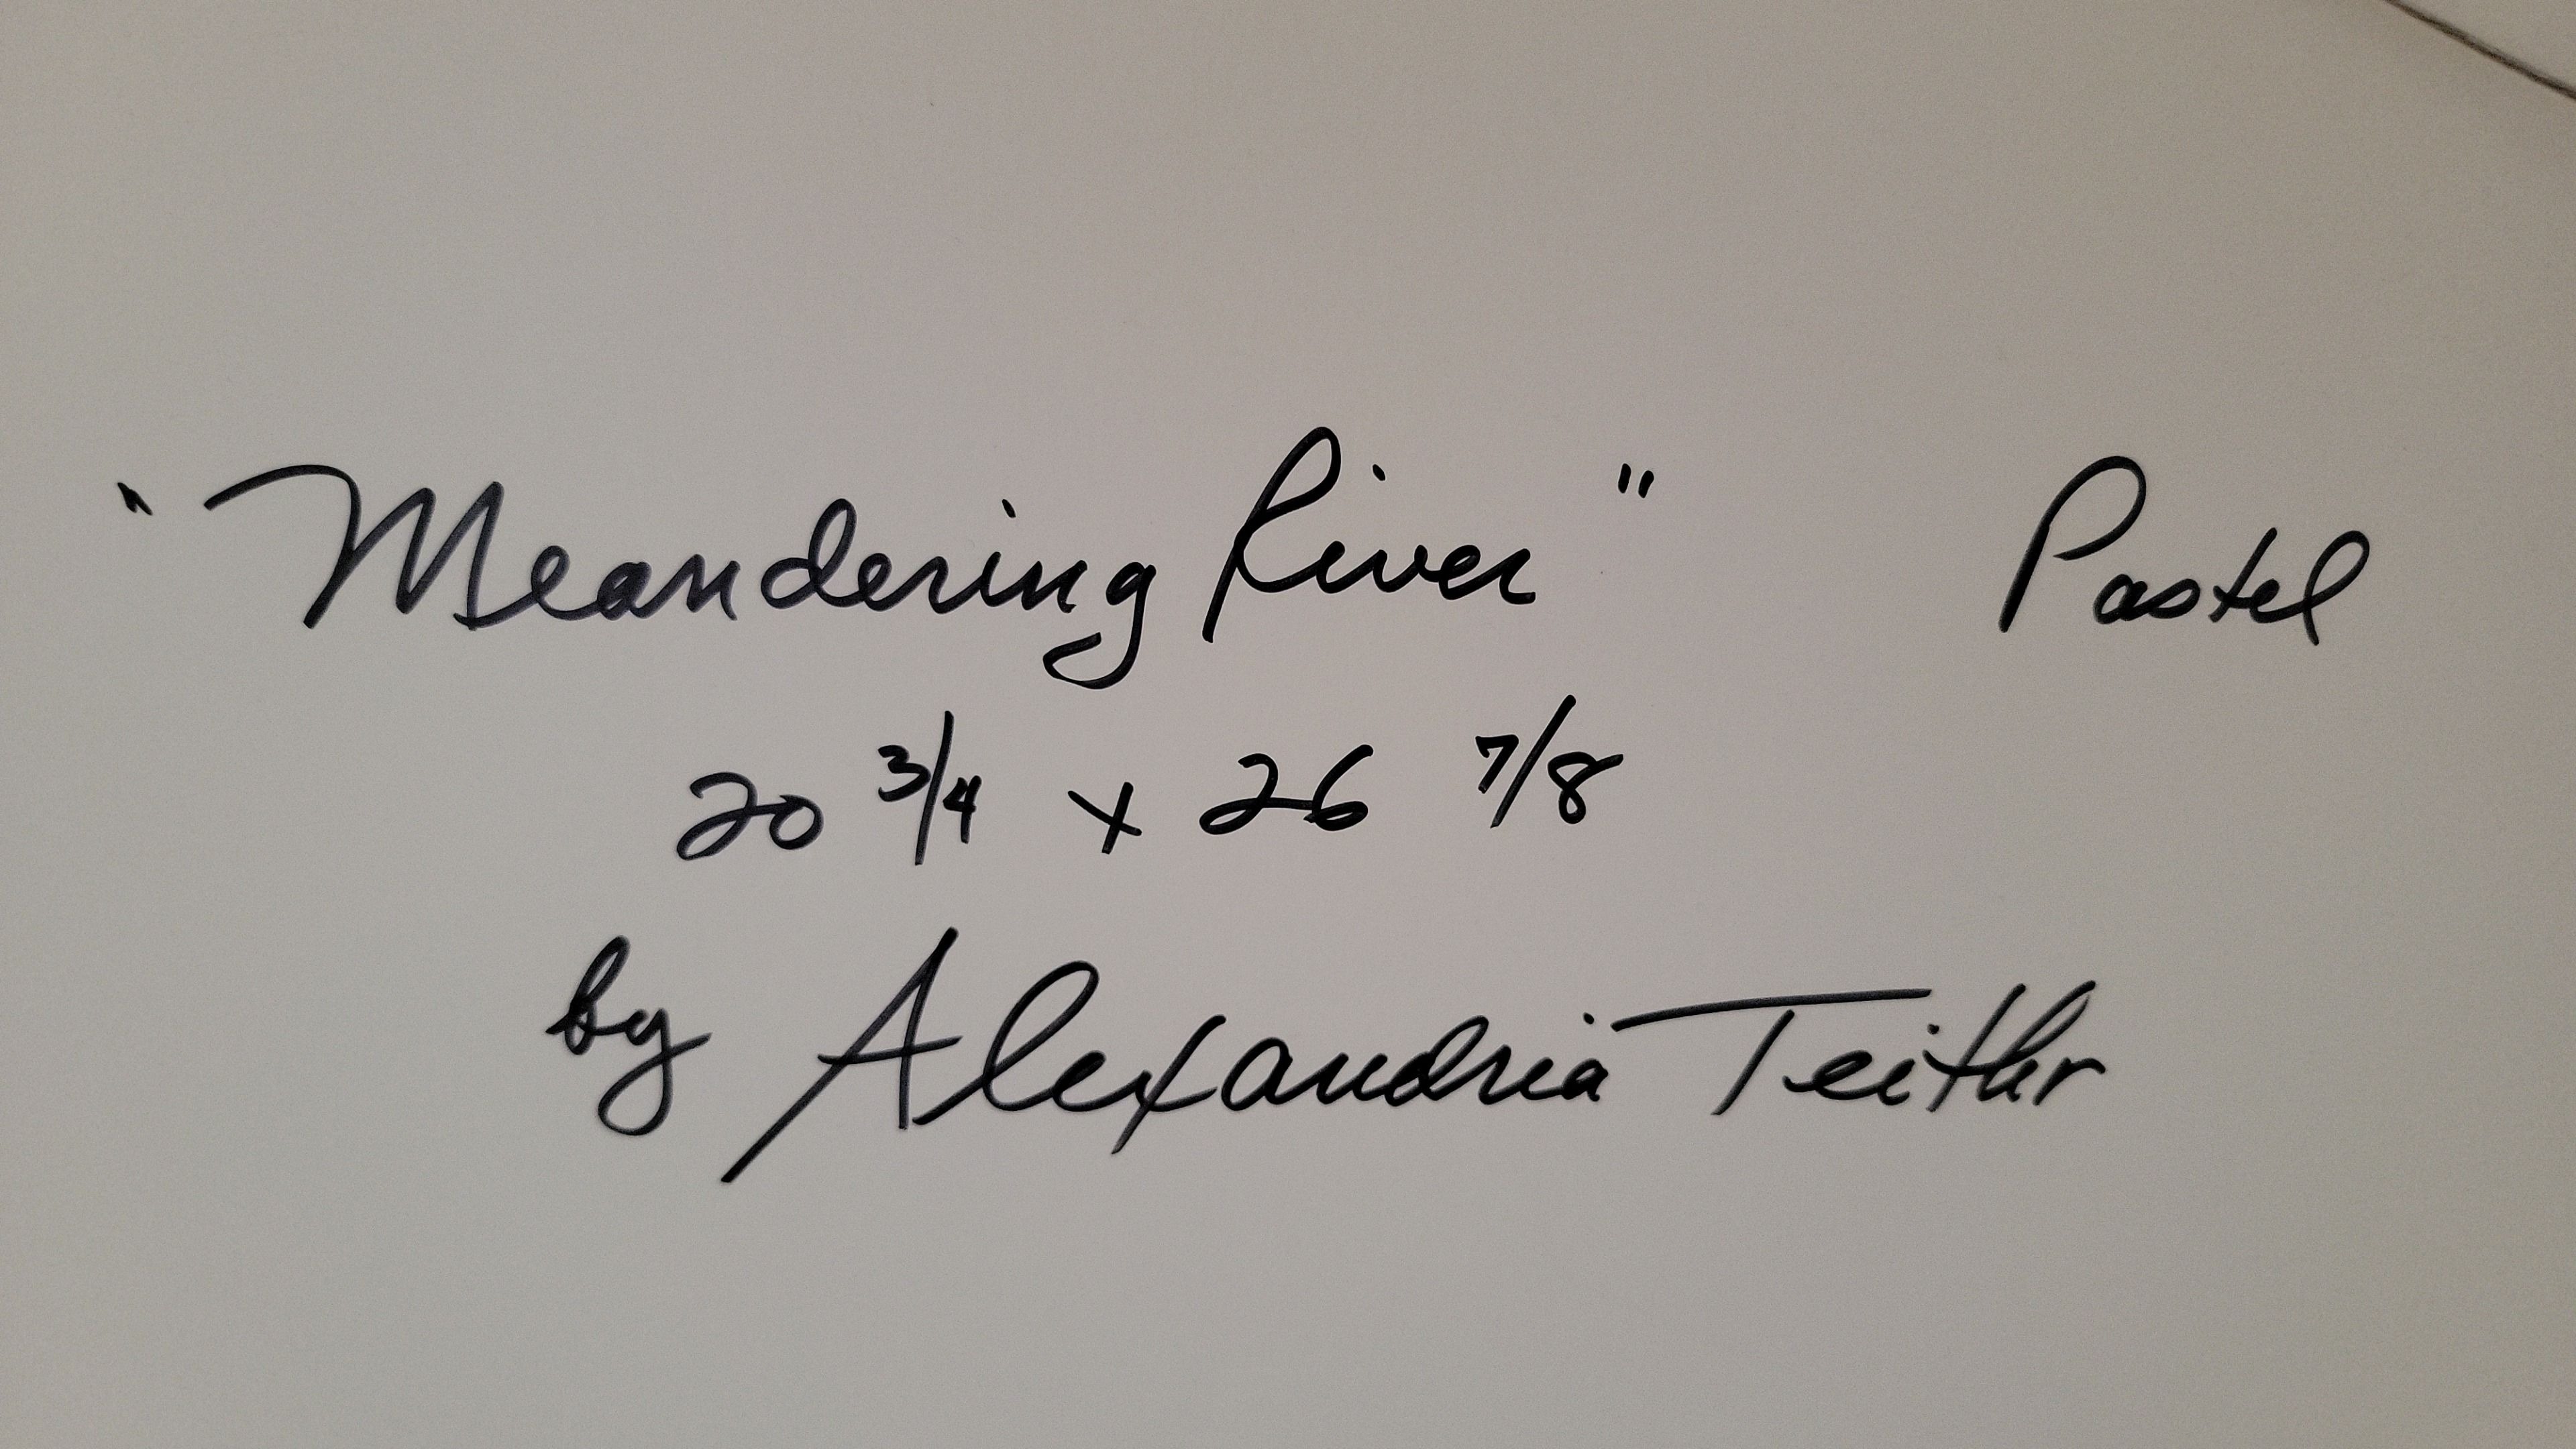 "Meandering River" Pastel
20 3/4 x 26 7/8
by Alexandria Teithr